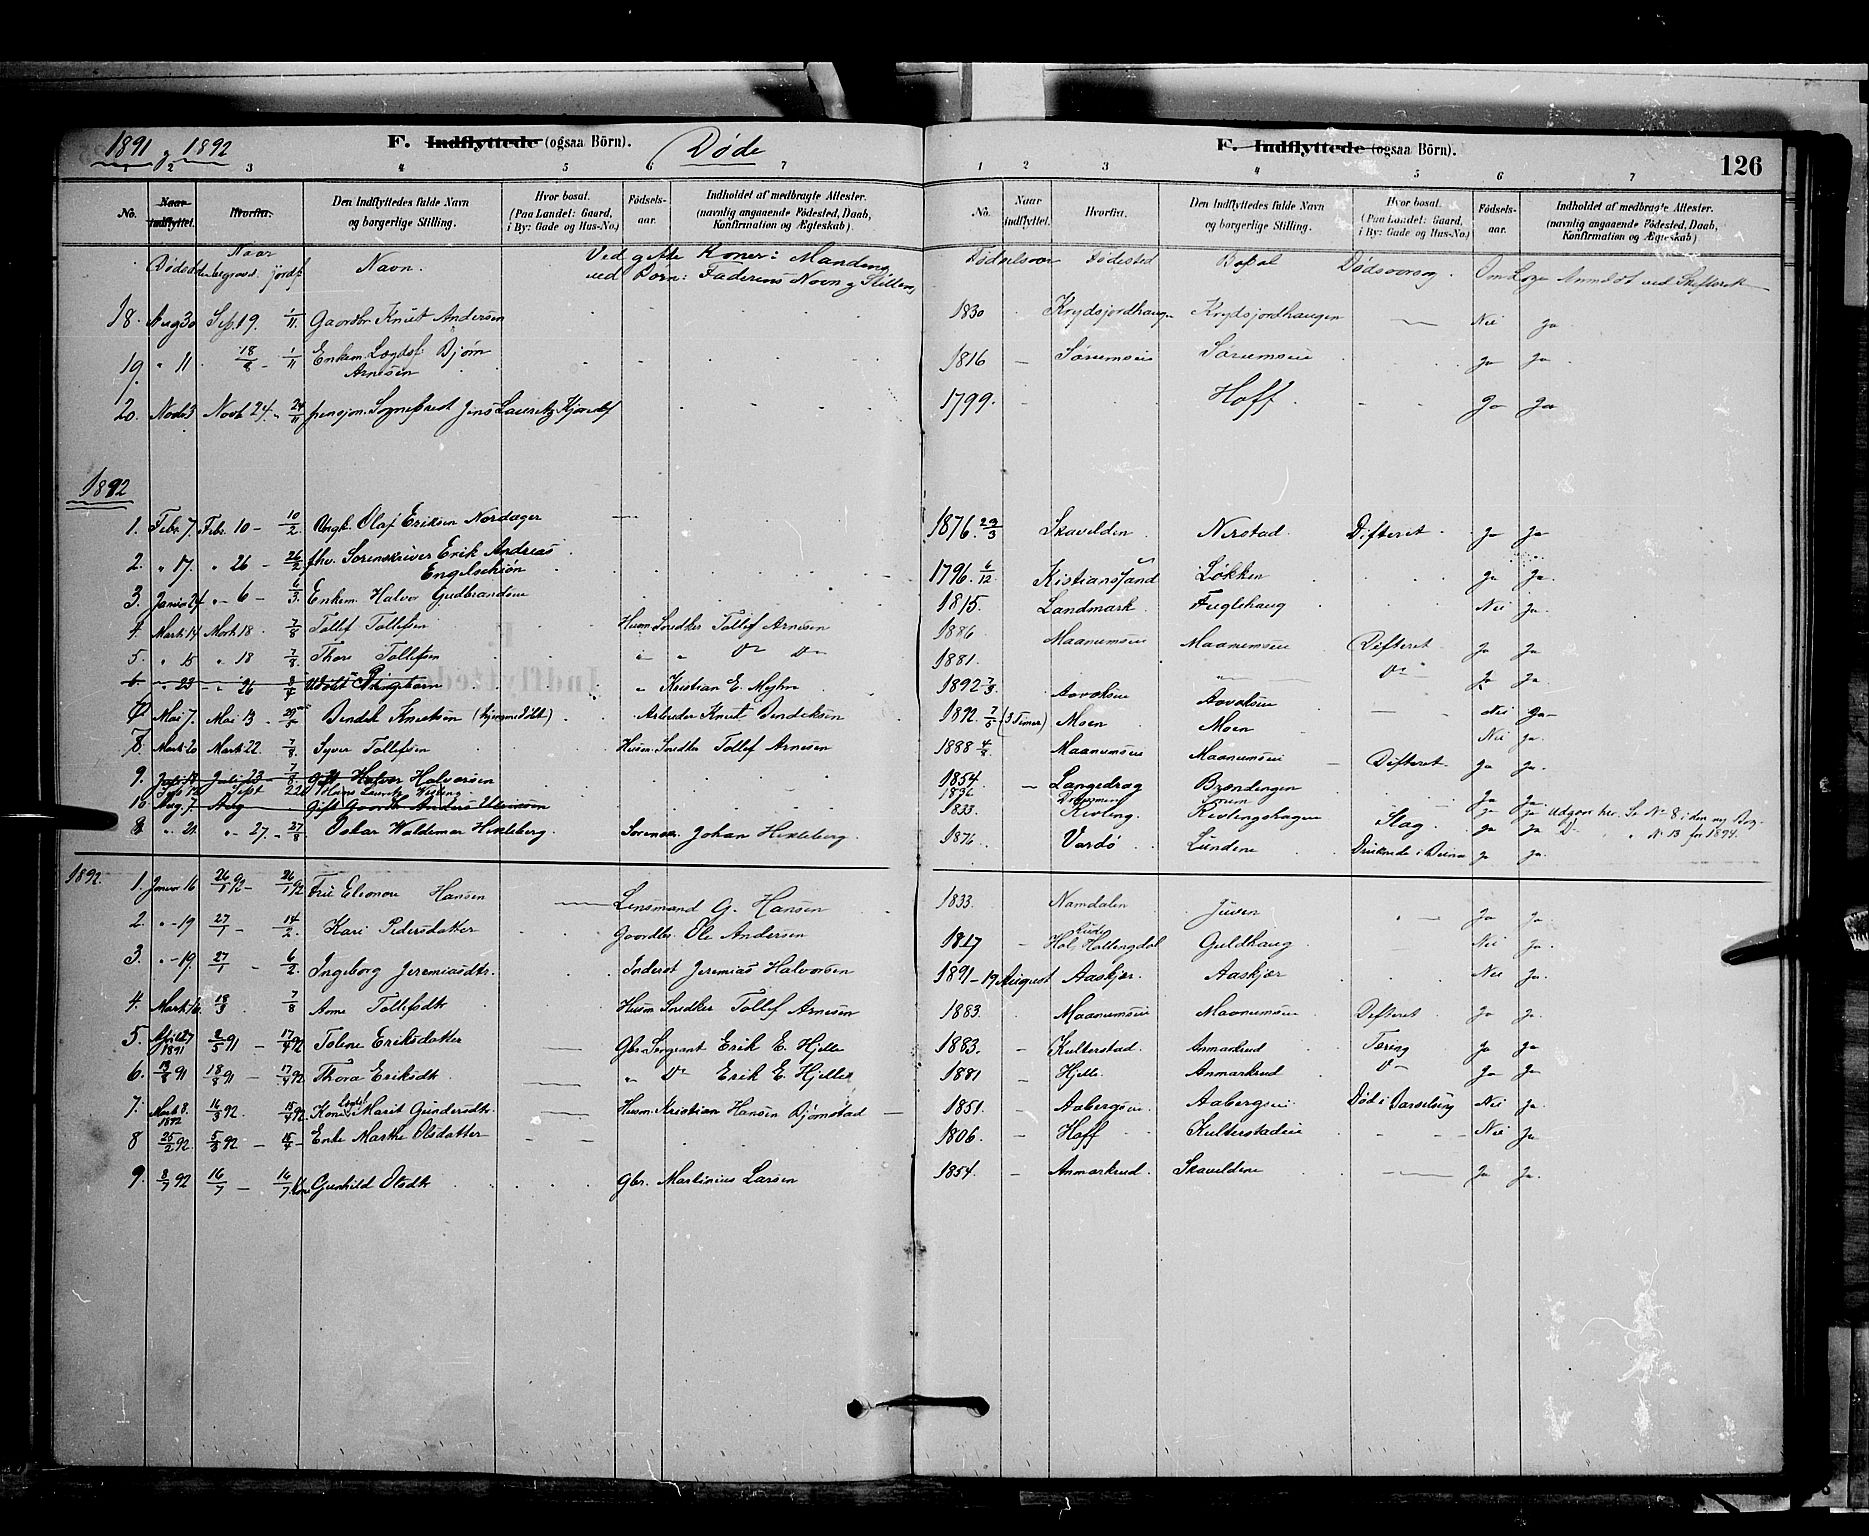 1891 og 1892
F. Indflyttede (ogsaa Börn). Døde
1 2 3 4 5 6 7
No. Naar indflyttet. Hvorfra. Den Indflyttedes fulde Navn og borgerlige Stilling. Hvor bosat. (Paa Landet: Gaard, i By: Gade og Hus-No.) Fødsels-aar. Indholdet af medbragte Attester. (navnlig angaaende Födested, Daab, Konfirmation og Ægteskab.)
Naar
Navn. Ved gifte Koner: Mandens
ved Børn: Faderens Navn og Stilling
18. Aug 30 Sep. 19. 1/11. Gaardbr. Knut Andersen
19. " 11 18/8 - 1/11 Enkem. Lægdsl. Bjørn
Arnesen
20. Novb 3 Novb 24. - 24/11 pensjon. Sogneprest Jens Lauritz
1892
1. Febr. 7. Febr. 10 - 10/2 Ungk. Olaf Eriksen Nordager
2. " 17. " 26 - 26/2 fhv. Sorenskriver Erik Andreas
Engelschiøn
3. Januar 24 " 6 - 6/3. Enkem. Halvor Gudbrandsen
4. Mark 14 Mark 18. 7/8 Tollef Tollefsen Husm. Snedker Tollef Arnesen
5. " 15 " 18 7/8. Thore Tollefsen " " Do Do
6. " 23 " 26 3/4 Udøbt Pigebarn " Kristian E. Myhre
7 Mai 7. Mai 13 - Bendik Knutsen (hjemmedøbt) Arbeider Knut Bendiksen
8. Mark 20 Mark 22. 7/8 Syver Tollefsen Husm. Snedker Tollef Arnesen
9. Juli 14 Juli 23 - 7/8. Gift Halvor Halvorsen
Sept Hans Lauritz
10 Aug. 7. Aug Gift Gaardbr. Anders
8 " 21. " 27 - 27/8 Oskar Waldemar Hexeberg. Johan Hexeberg.
1892.
1. Januar 16 26/1 92 - 26/1 92 Fru Eleonore Hansen Lensmand G. Hansen
2. " 19 27/1 - 14/2. Kari Pedersdatter Gaardbr. Ole Andersen
3. " 19. 27/1 - 6/2. Ingeborg Jeremiasdtr. Inderst Jeremias Halvorsen
4. Mark 16. 18/3 7/8 Anne Tollefsdtr Husm Snedker Tollef Arnesen
5. April 27 1891 2/5 91 - 17/4 92 Toline Eriksdatter Gbr. Sergeant Erik E. Hjelle
6. 13/8 91 18/8 91 - 17/4 92 Thora Eriksdtr. " Do Erik E. Hjelle
7. Mark 8. 1892 16/3 92. 15/4 92 Kone Lægdsl. Marit Gundersdtr. Husm. Kristian Hansen Bjørnstad
8 25/2 92 5/3 92 - 15/4 - Enke Marthe Olsdatter
9. 8/7 92 16/7 - 16/7 Kone Gunhild Olsdtr Gbr. Martinius Larsen
F. Indflyttede (ogsaa Börn).
126
1 2 3 4 5 6 7
No. Naar indflyttet. Hvorfra. Den Indflyttedes fulde Navn og borgerlige Stilling. Hvor bosat. (Paa Landet: Gaard, i By: Gade og Hus-No.) Fødsels-aar. Indholdet af medbragte Attester. (navnlig angaaende Födested, Daab, Konfirmation og Ægteskab)
Fødselsaar Fødested Bopæl Dødsaarsag. Om Læge Anmeldt ved Skifteret
1830 Krydsjordhaugen Krydsjordhaugen Nei Ja
1816 - Sørumseie Sørumseie Ja Ja
1799. Hoff. Ja Ja
1876. 29/3 Skavelden Nerstad. Difteret. Ja Ja
1796. 6/12 Kristiansand Løkken Ja Ja.
1815. Landmark. Fuglehaug Nei Ja.
1886 Maanumseie Maanumseie Difteret Ja Ja
1881. Do Ja Ja.
1892 Aavolseie Aavolseie Nei Ja
1892. 7/5 (3 Timer) Moen Moen Nei Ja.
1888 Maanumseie Maanumseie - Difteret Ja Ja.
1854. - Langedrag Brændengen
1836 Ja Ja
1833. Kivling. Kivlingshagen Slag. Ja Ja Udgaar her. Se No 8 i den ny Bog.
1876 Vardø Lundene Druknede i Ja Ja. Do " No 13 for 1894.
1833. Namdalen Juven Ja Ja.
1817 - Hol, Hallingdal Guldhaug Nei Ja.
1891 - 19 August Aaskjær. Aaskjær Nei Ja.
1883. Maanumseie Maanumseie Difteret Ja Ja.
1883. - Kulterstad. Anmarkrud Tæring Ja Ja
1881 - Hjelle. Anmarkrud Do Ja Ja
1851. - Aabergseie. Aabergseie Død i Barselseng Nei Ja.
1806. - Hoff Kulterstadeie - - - Nei Ja
1854. - Anmarkrud. Skaveldene Ja Ja.